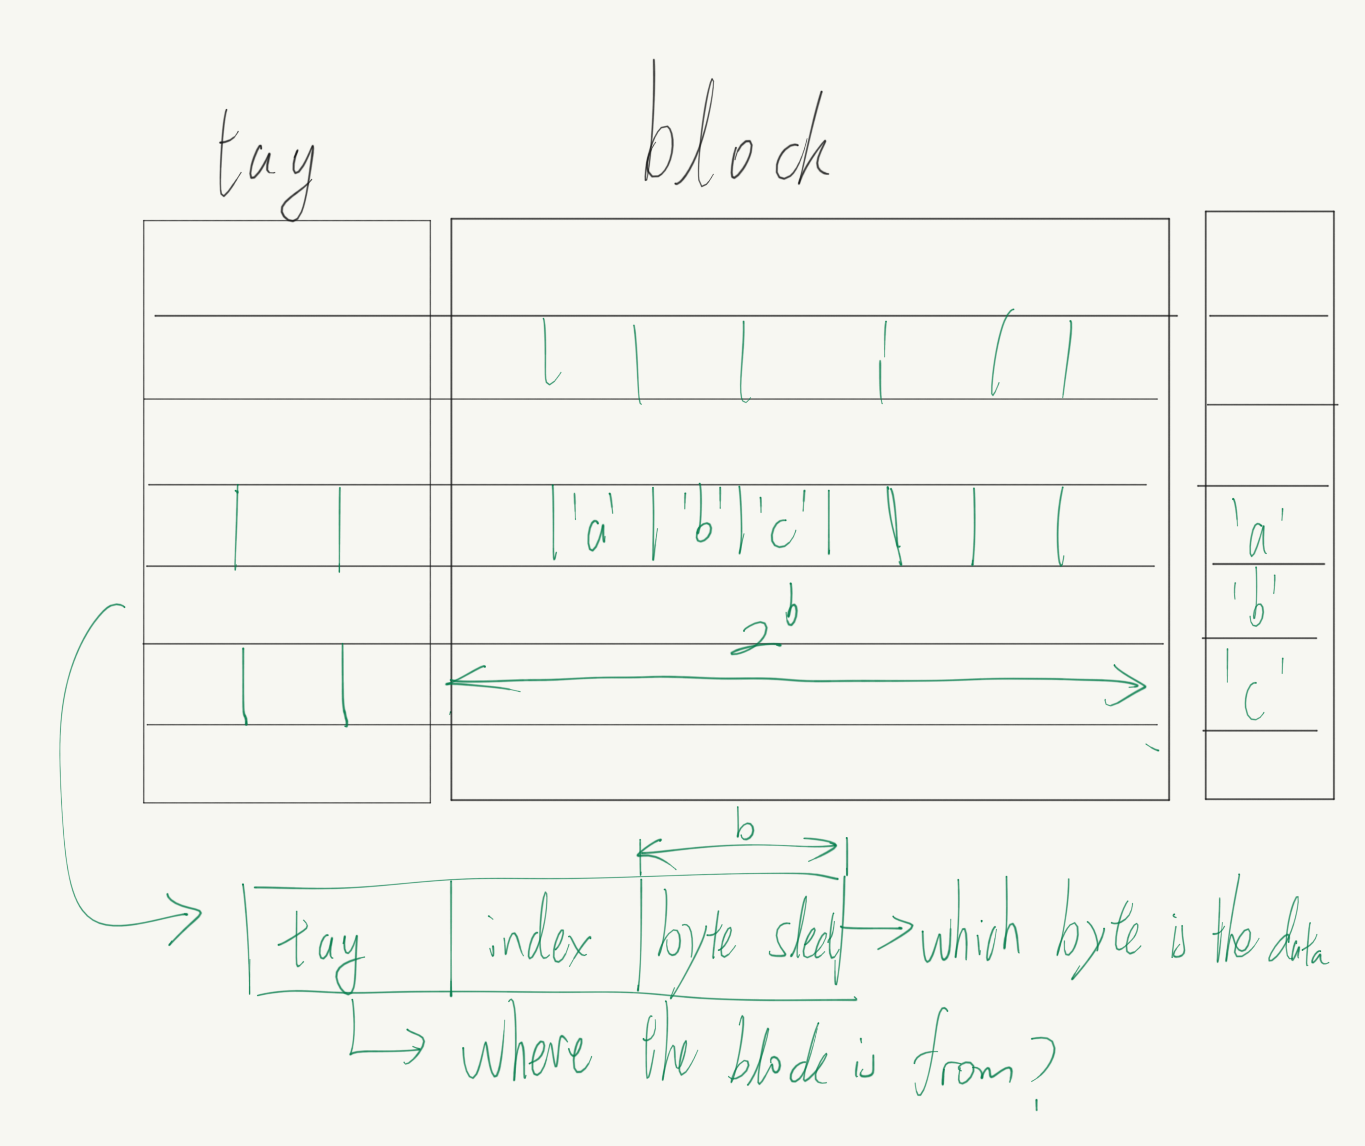 tag block
'a' 'b' 'c' 'a'
'b'
2^b
'c'
b
tag index byte which byte is the data
where the block is from?